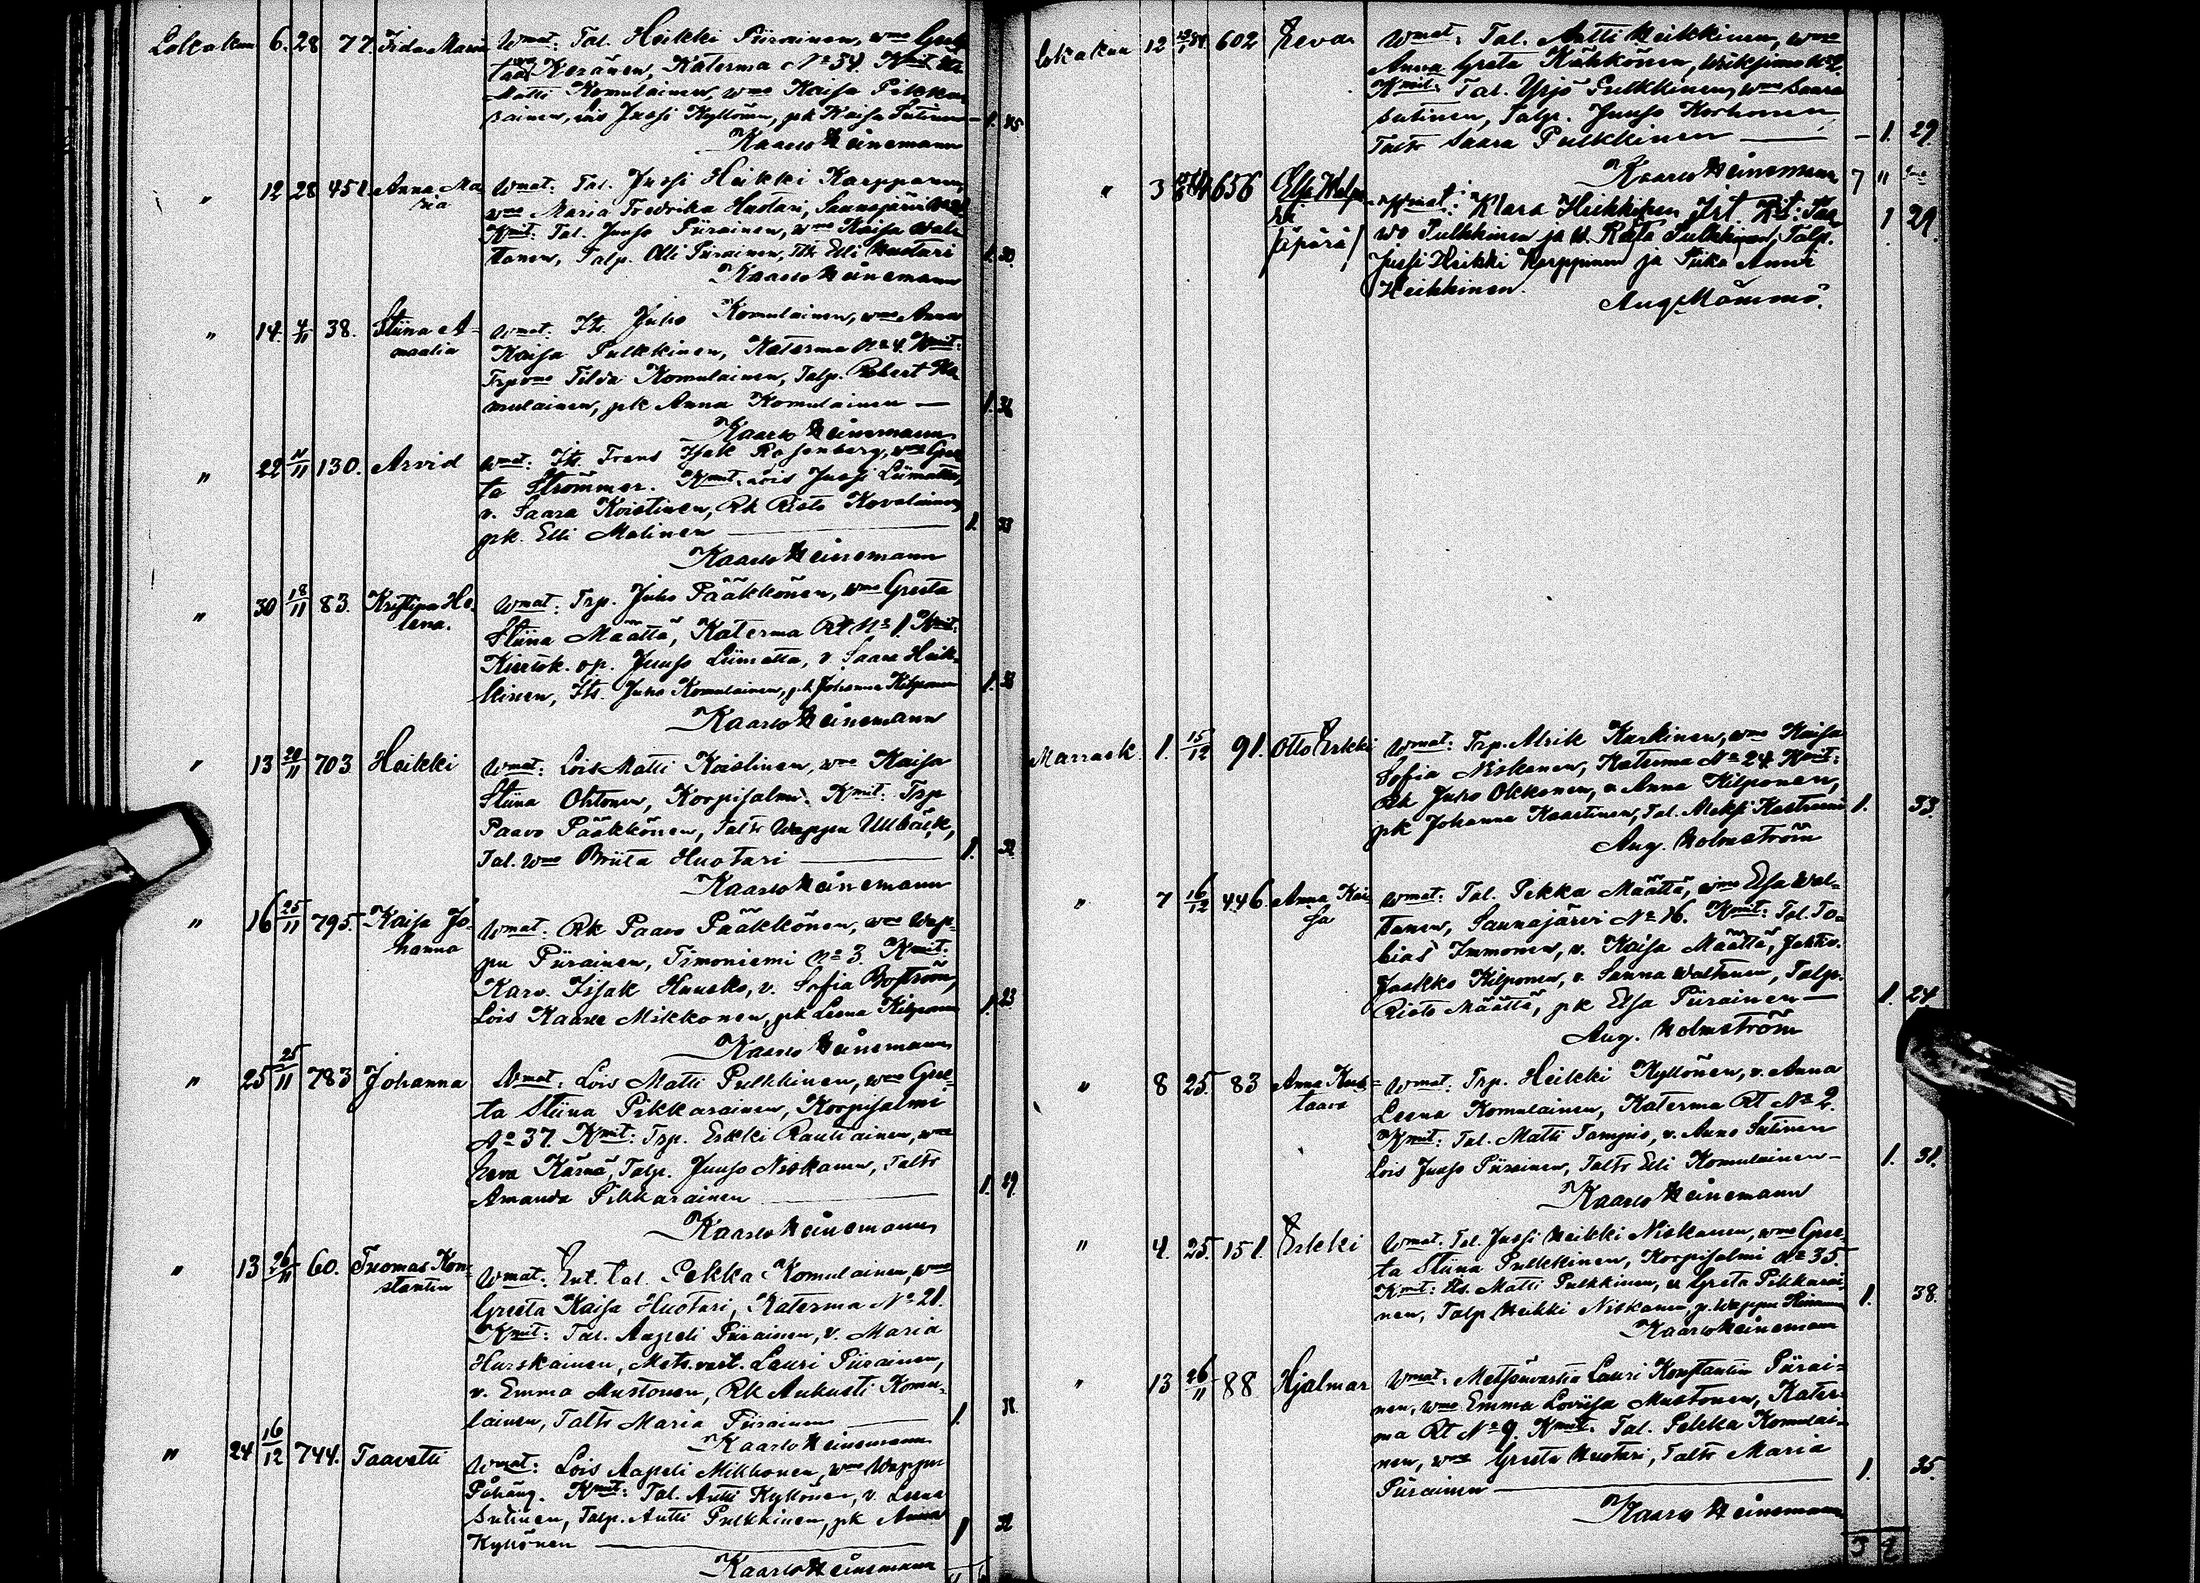 Lokakuu 6. 28 77. Iida Maria Wmat: Tal. Heikki Piirainen, wmo Gree-
taa Keränen, Katerma No 54. Kmit:
Matti Komulainen, wmo Kaisa Pikka-
rainen, Lois Jussi Kyllönen, pk Kaisa Sutinen — 1. 45
Kaarlo Heinemann
" 12 28 451. Anna Ma- Wmat: Tal. Jussi Heikki Karppinen,
ria wmo Maria Fredrika Huotari, Saunajärvi
Kmit: Tal. Juuso Piirainen, wmo Kaisa Wal-
tanen, Talp. Olli Piirainen, Tltr Elli Huotari 1. 30.
Kaarlo Heinemann
" 14. 4/11 38. Stiina A- Wmat: Its. Juho Komulainen, wmo Anna
maalia Kaisa Pulkkinen, Katerma No 4. Kmit:
Trp wmo Tilda Komulainen, Talp. Robert Ko-
mulainen, pk Anna Komulainen — 1. 36
Kaarlo Heinemann
" 22 11/11 130. Arvid Wmat: Its. Frans Isak Rosenberg, wmo Gree-
ta Strömmer. Kmit. Lois Jussi Liimatta,
v. Saara Koistinen, Rk Risto Kovalainen,
pk. Elli Malinen — 1. 33
Kaarlo Heinemann
" 30 18/11 83. Kristiina He- Wmat: Trp. Juho Pääkkönen, wmo Greeta
lena. Stiina Määttä, Katerma Rt No 1. Kmit:
Kiertok. op. Juuso Liimatta, v. Saara Heik-
kinen, Its. Juho Komulainen, pk Johanna Kilponen 1. 33
Kaarlo Heinemann
" 13 20/11 703 Heikki Wmat: Lois Matti Koistinen, wmo Kaisa
Stiina Ohtonen, Korpisalmi. Kmit: Trp
Paavo Pääkkönen, Taltr Wappu Ullbäck,
Tal. wmo Briita Huotari — 1. 32.
Kaarlo Heinemann
" 16 25/11 795. Kaisa Jo- Wmat: Rk Paavo Pääkkönen, wmo Wap-
hanna pu Piirainen, Timoniemi No 3. Kmit:
Karv. Isak Huusko, v. Sofia Boström,
Lois Kaarle Mikkonen, pk Leena Kilponen 1. 23.
Kaarlo Heinemann
" 25 25/11 783 Johanna Wmat: Lois Matti Pulkkinen, wmo Gree-
ta Stiina Pikkarainen, Korpisalmi
No 37. Kmit: Trp. Erkki Rautiainen, wmo
Eeva Kärnä, Talp. Juuso Niskanen, Taltr
Amanda Pikkarainen — 1. 29.
Kaarlo Heinemann
" 13 26/11 60. Tuomas Kon- Wmat: Ent. tal. Pekka Komulainen, wmo
stantin Greeta Kaisa Huotari, Katerma No 21.
Kmit: Tal. Aapeli Piirainen, v. Maria
Hurskainen, Mets.vart. Lauri Piirainen,
v. Emma Mustonen, Rk Aukusti Komu-
lainen, Taltr Maria Piirainen — 1. 38.
Kaarlo Heinemann
" 24 16/12 744. Taavetti Wmat: Lois Aapeli Mikkonen, wmo Wappu
Påhäng. Kmit: Tal. Antti Kyllönen, v. Leena
Sutinen, Talp. Antti Pulkkinen, pk Anna
Kyllönen — 1 32
Kaarlo Heinemann
Lokakuu 12 602 Eeva Wmat: Tal. Antti Heikkinen, wmo
Anna Greta Kähkönen, No 2.
Kmit: Tal. Yrjö Pulkkinen, wmo Saara
Sutinen, Talp. Juuso Korhonen,
Taltr Saara Pulkkinen — 1. 29.
Kaarlo Heinemann 7 "
" 3 656 Elsa
/äpärä/ Wmat: Klara Heikkinen Irt. Kit: Paa-
vo Pulkkinen ja w. Reeta Pulkkinen, Talp. 1 29.
Jussi Heikki Karppinen ja Piika Anni
Heikkinen.
Aug. Mömmö.
Marrask. 1. 15/12 91. Otto Erkki Wmat: Trp. Alrik Karkinen, wmo Kaisa
Sofia Niskanen, Katerma No 24. Kmit:
Rk Juho Okkonen, v. Anna Kilponen,
pk Johanna Kaartinen, Tal. Aleksi 1. 33.
Aug. Holmström
" 7 16/12 446 Anna Kai- Wmat: Tal. Pekka Määttä, wmo Elsa Wal-
sa tanen, Saunajärvi No 16. Kmit: Tal. To-
bias Immonen, v. Kaisa Määttä,
Jaakko Kilponen, v. Sanna Waltanen, Talp.
Risto Määttä, pk Elsa Piirainen — 1. 24.
Aug. Holmström
" 8 25. 83 Anna Kus- Wmat: Trp. Heikki Kyllönen, v. Anna
taava Leena Komulainen, Katerma Rt No 2.
Kmit: Tal. Matti Tampio, v. Anna Sutinen
Lois Juuso Piirainen, Taltr Elli Komulainen — 1. 31.
Kaarlo Heinemann
" 4. 25. 151. Erkki Wmat. Tal. Jussi Heikki Niskanen, wmo Gree-
ta Stiina Pulkkinen, Korpisalmi No 35.
Kmit: Matti Pulkkinen, v. Greta Pikkarai-
nen, Talp. Heikki Niskanen, p. Wappu 1. 38.
Kaarlo Heinemann
" 13 26/11 88 Hjalmar Wmat: Metsänvartia Lauri Konstantin Piirai-
nen, wmo Emma Loviisa Mustonen, Kater-
ma Rt No 9. Kmit: Tal. Pekka Komulai-
nen, wmo Greeta Huotari, Taltr Maria
Piirainen — 1. 35.
Kaarlo Heinemann